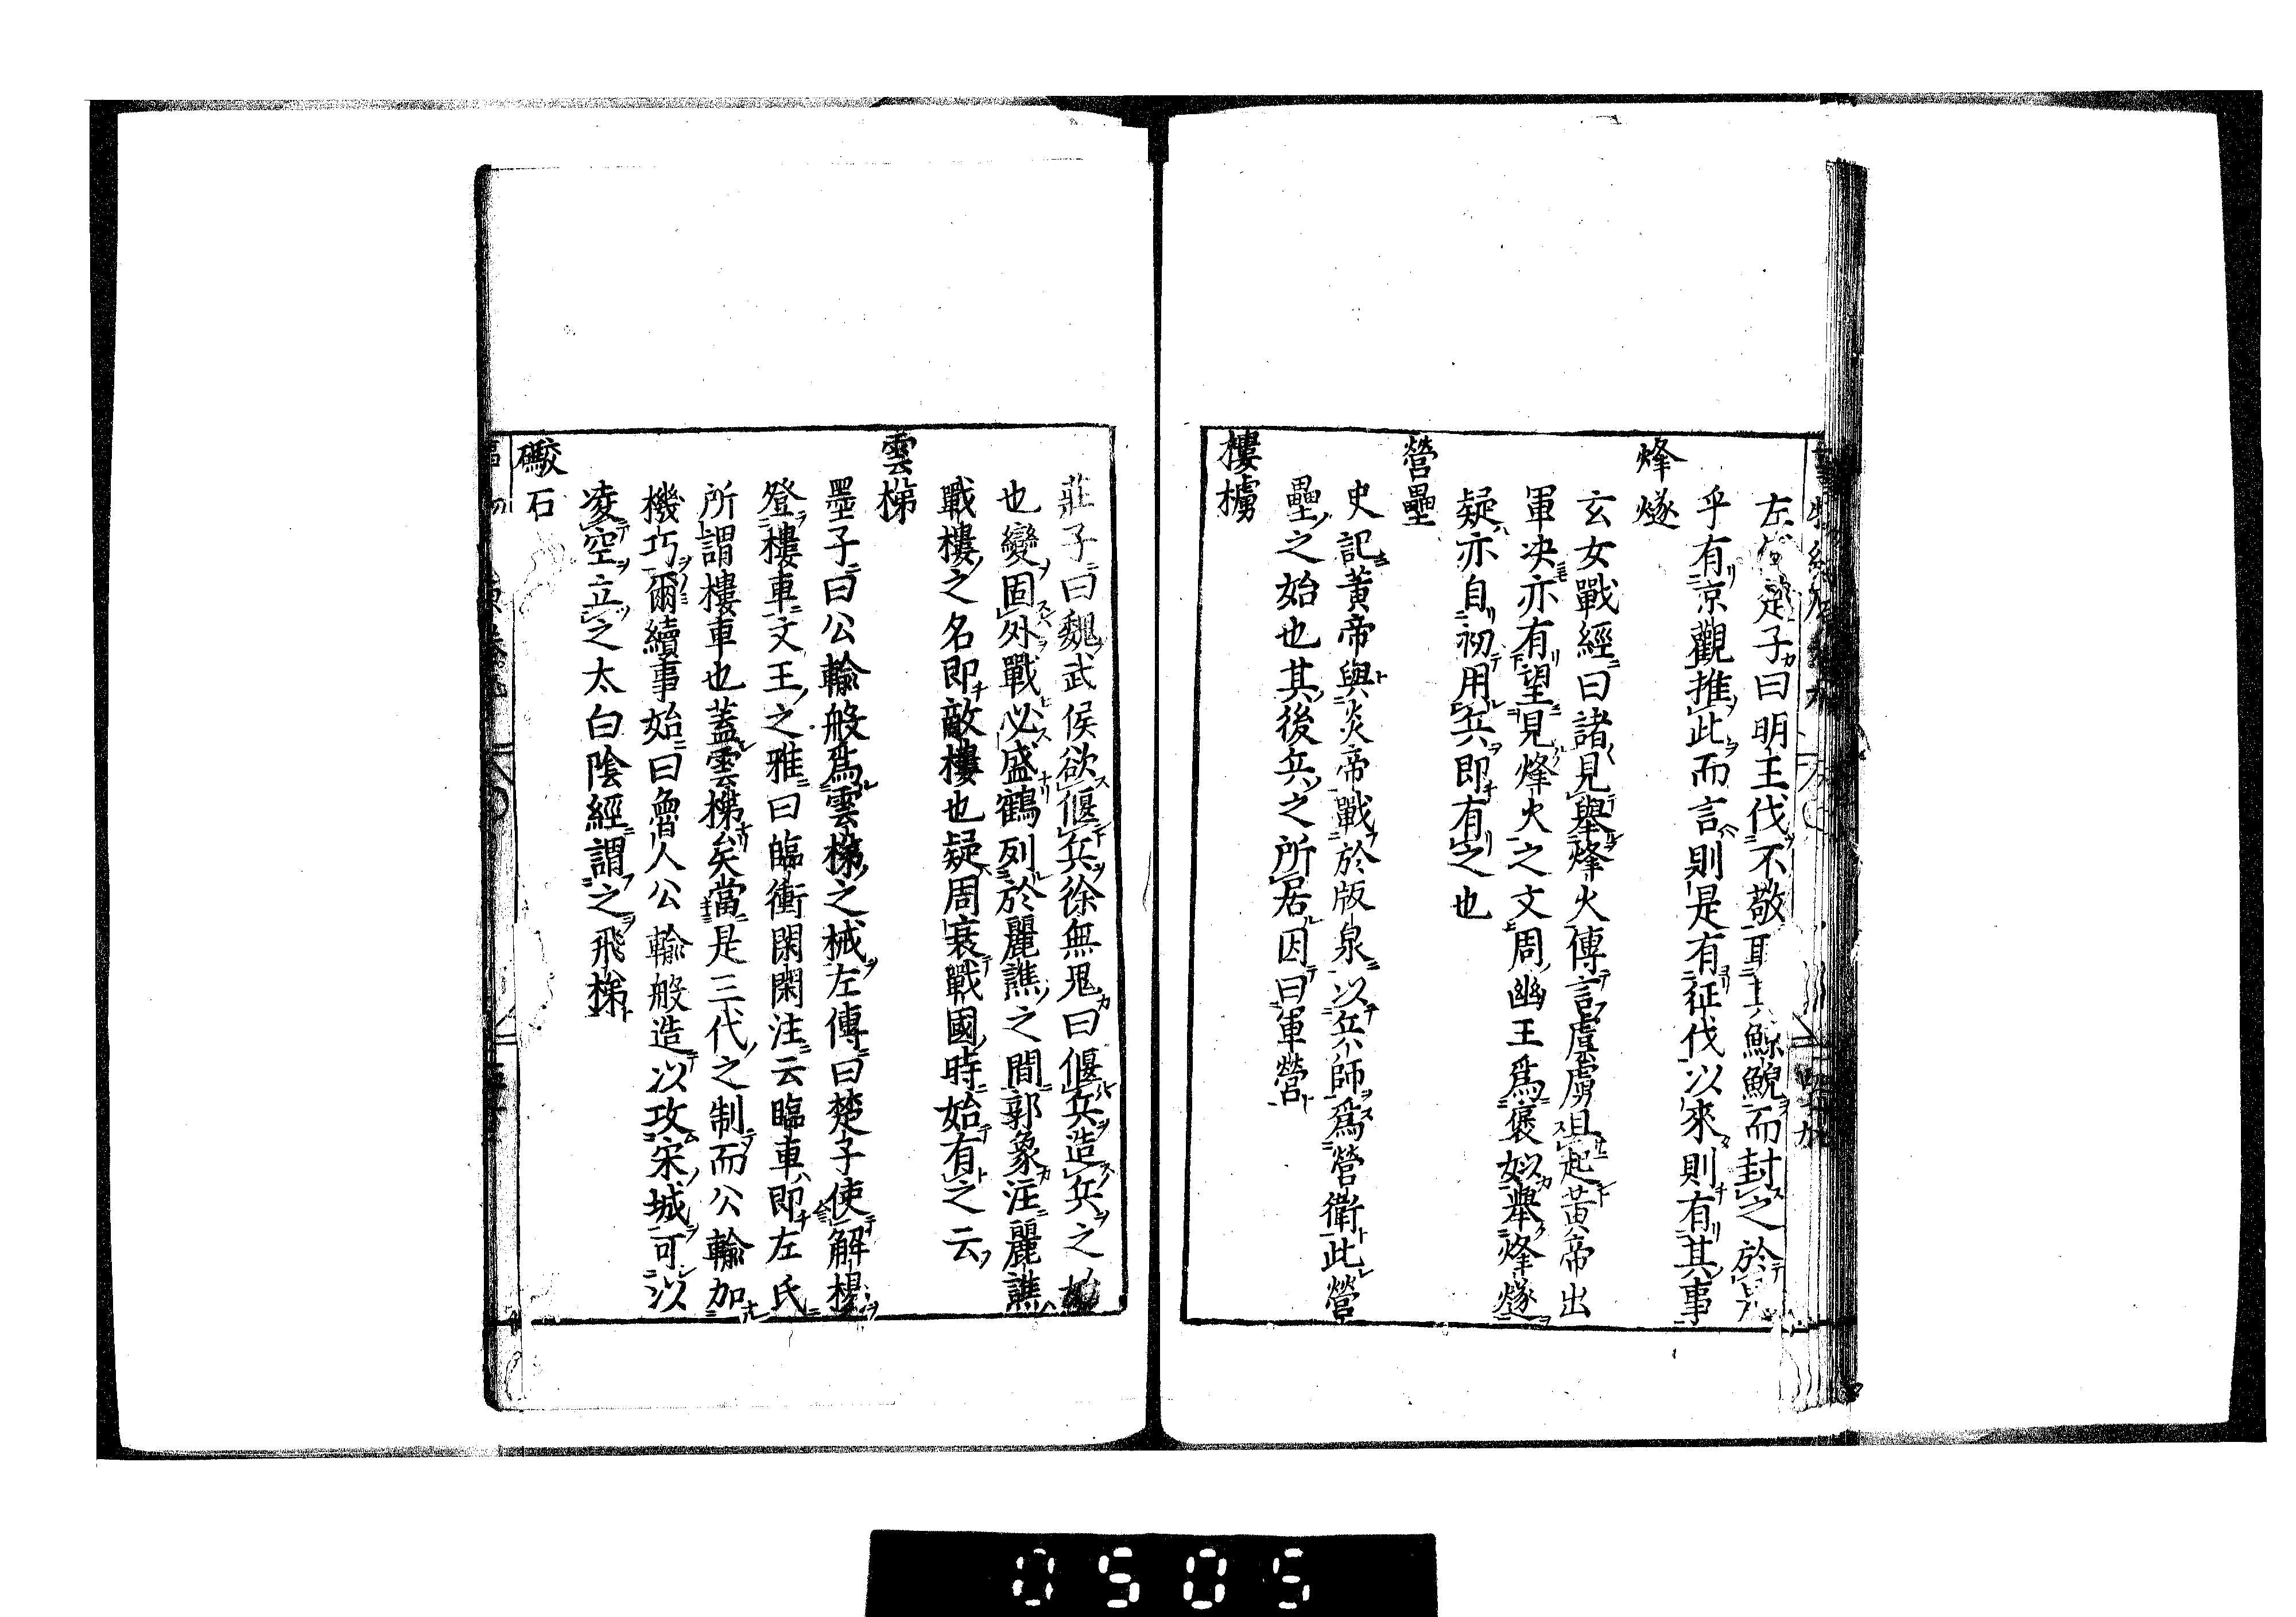 左 楚子曰明王伐不敬取其鯨鯢而封之於是
乎有京觀推此而言則是有征伐以來則有其事
烽燧
玄女戰經曰諸見舉烽火傳言虞虜且起黃帝出
軍决亦有望見烽火之文周幽王爲褒姒舉烽燧
疑亦自初用兵即有之也
營壘
史記黃帝與炎帝戰於版泉以兵師爲營衛此營
壘之始也其後兵之所居因曰軍營
樓櫓
莊子曰魏武侯欲偃兵徐無鬼曰偃兵造兵之
也變固外戰必盛鶴列於麗譙之間郭象注麗譙
戰樓之名即敵樓也疑周衰戰國時始有之云
雲梯
墨子曰公輸般爲雲梯之械左傳曰楚子使解楊
登樓車文王之雅曰臨衝閑閑注云臨車即左氏
所謂樓車也蓋雲梯矣當是三代之制而公輸加
機巧爾續事始曰魯人公輸般造以攻宋城可以
凌空立之太白陰經謂之飛梯
礮石
0505